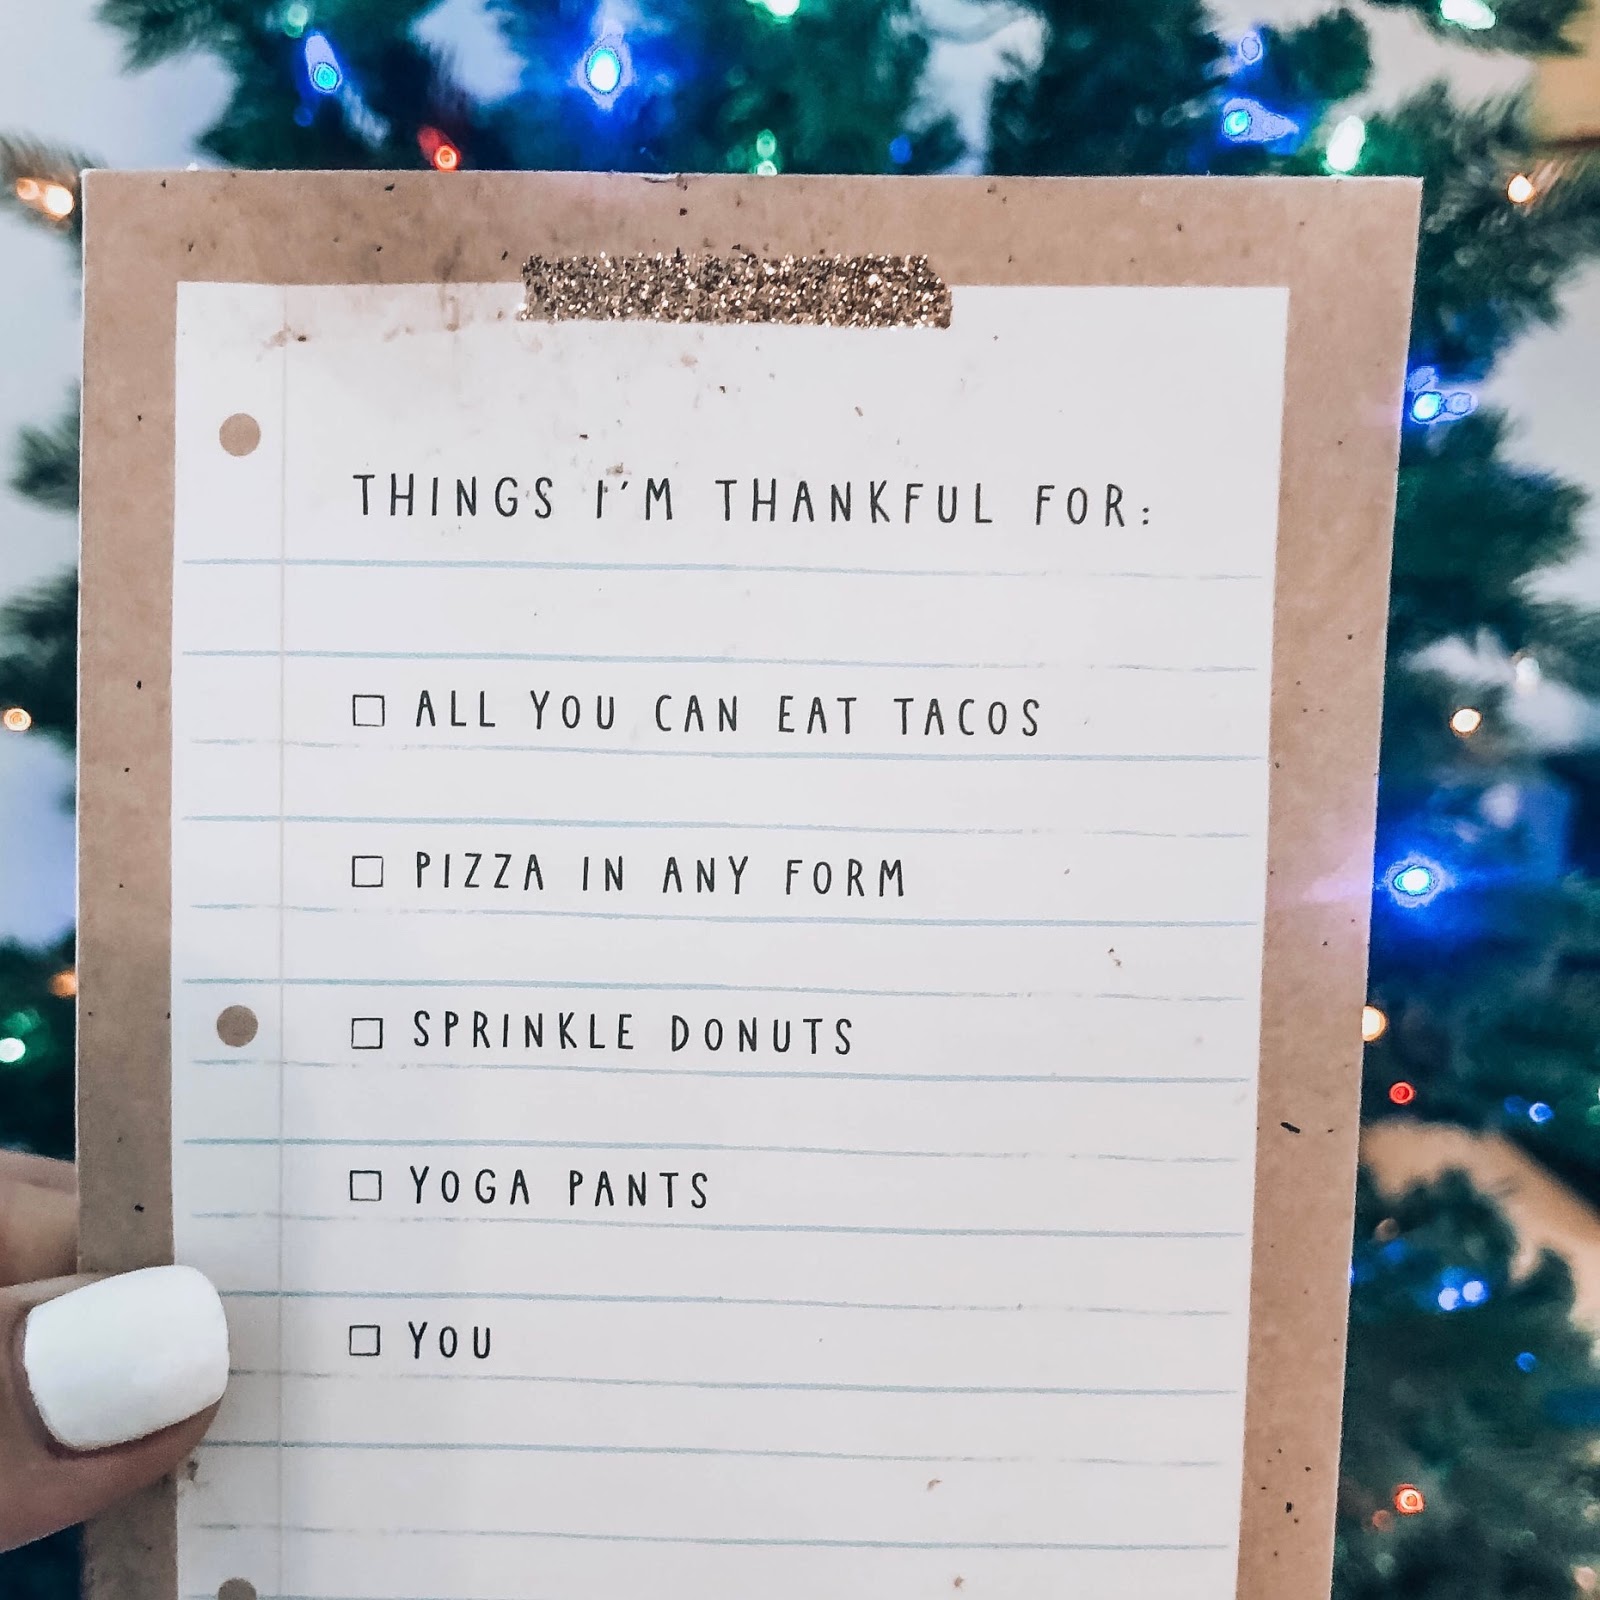 THINGS I'M THANKFUL FOR:
ALL YOU CAN EAT TACOS
PIZZA IN ANY FORM
SPRINKLE DONUTS
YOGA PANTS
YOU